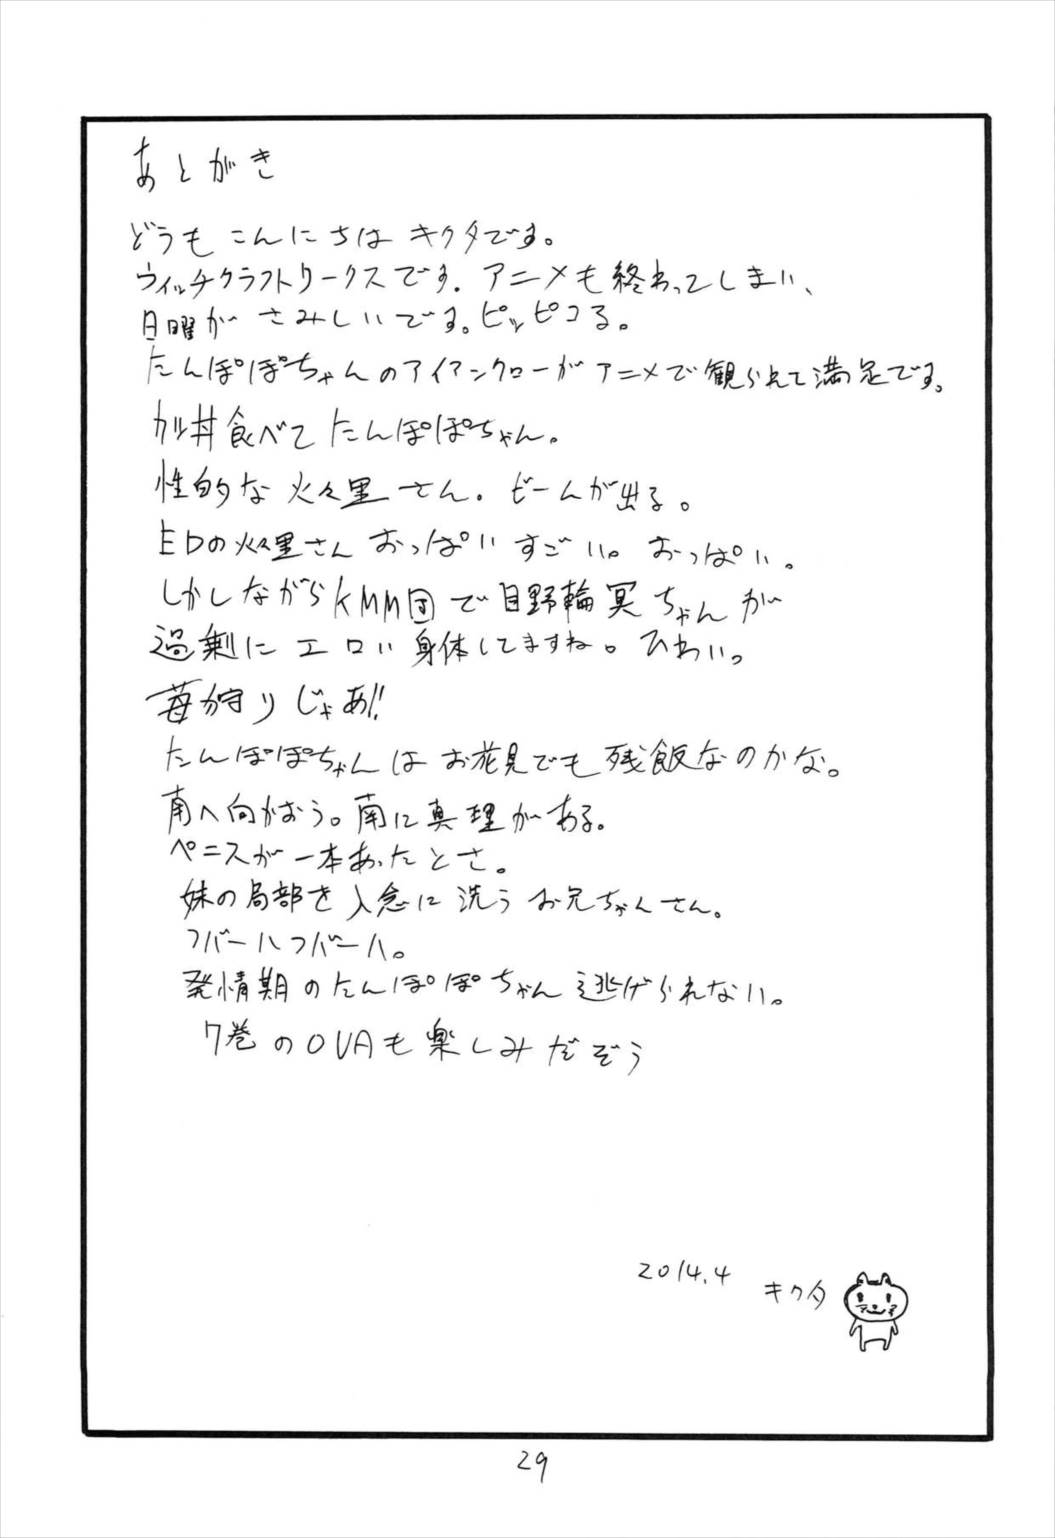 あとがき
どうもこんにちは キクタです。
ウィッチクラフトワークスです。アニメも終わってしまい、
日曜が さみしいです。ピッピコる。
たんぽぽちゃんのアイアンクローがアニメで観られて満足です。
カツ丼食べて たんぽぽちゃん。
性的な 火々里さん。ビームが出る。
EDの火々里さん おっぱい すごい。おっぱい。
しかしながらKMM団で目野輪冥ちゃんが
過剰に エロい 身体してますね。ひわい。
苺狩りじゃあ!!
たんぽぽちゃんは お花見でも 残飯なのかな。
南へ向かおう。南に真理がある。
ペニスが一本あったとさ。
妹の局部を 入念に 洗う お兄ちゃんさん。
フバーハフバーハ。
発情期のたんぽぽちゃん 逃げられない。
7巻のOVAも楽しみだぞう
2014.4 キクタ
29